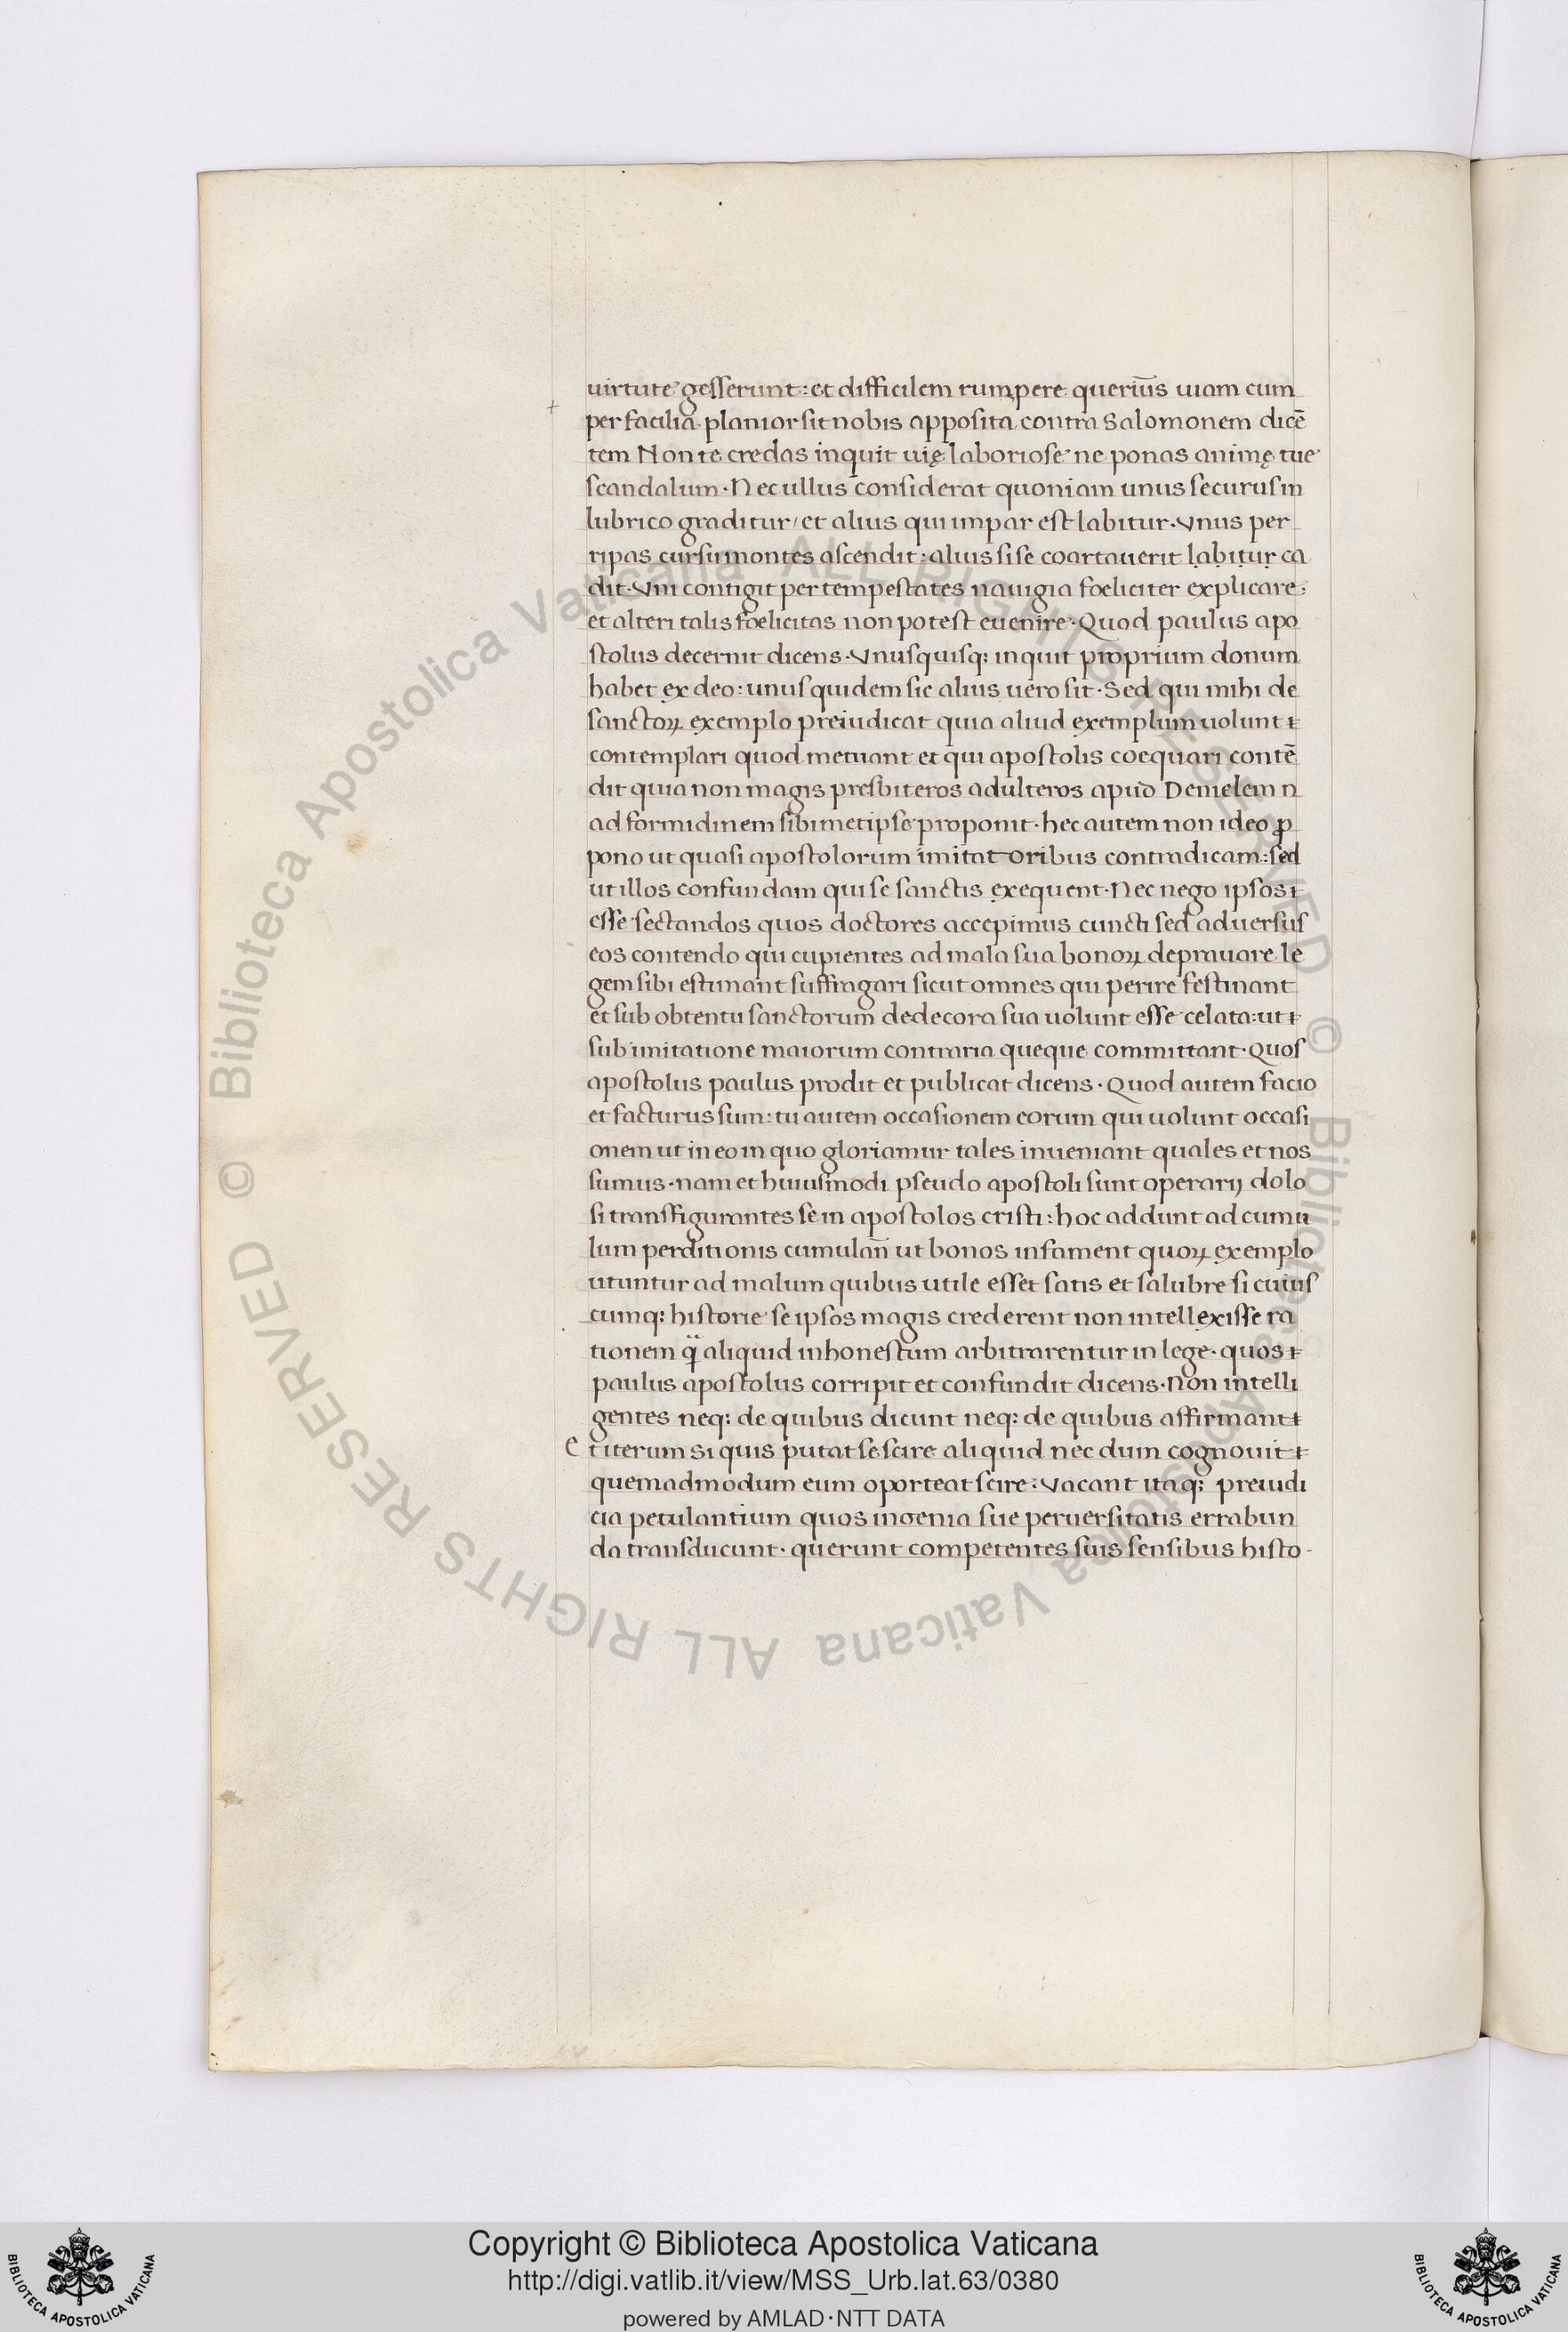 uirtute gesserunt: et difficilem rumpere querim̄s uiam cum
per facilia planior sit nobis apposita contra Salomonem dicē
tem Non te credas inquit uię laboriose ne ponas animę tue
scandalum · Nec ullus considerat quoniam unus securus in
lubrico graditur / et alius qui impar est labitur · Vnus per
ripas cursu montes ascendit : alius si se coartauerit lạbịtụr ca
dit · Vni contigit per tempestates nauigia foeliciter explicare :
et alteri talis foelicitas non potest euenire · Quod paulus apo
stolus decernit dicens · Vnusquisq: inquit proprium donum
habet ex deo : unus quidem sic alius uero sit · Sed qui mihi de
sanctoꝝ exemplo preiudicat quia aliud exemplum uolunt
contemplari quod metuant et qui apostolis coequari contē
dit quia non magis presbiteros adulteros apud Denielem n
ad formidinem sibimetipse proponit · hec autem non ideo ꝓ
pono ut quasi apostolorum imitatoribus contradicam : sed
ut illos confundam qui se sanctis exequent · Nec nego ipsos
esse sectandos quos doctores accepimus cuncti sed aduersus
eos contendo qui cupientes ad mala sua bonoꝝ deprauare le
gem sibi estimant suffragari sicut omnes qui perire festinant
et sub obtentu sanctorum dedecora sua uolunt esse celata : ut
sub imitatione maiorum contraria queque committant · Quos
apostolus paulus prodit et publicat dicens · Quod autem facio
et facturus sum : tu autem occasionem eorum qui uolunt occasi
onem ut in eo in quo gloriamur tales inueniant quales et nos
sumus · nam et huiusmodi pseudo apostoli sunt operarij dolo
si transfigurantes se in apostolos cristi : hoc addunt ad cumu
lum perditionis cumulan̄ ut bonos infament quoꝝ exemplo
utuntur ad malum quibus utile esset satis et salubre si cuius
cumq: historie se ipsos magis crederent non intellexisse ra
tionem q̈ aliquid inhonestum arbitrarentur in lege · quos
paulus apostolus corripit et confundit dicens · Non intelli
gentes neq: de quibus dicunt neq: de quibus affirmant
Et iterum si quis putat se scire aliquid nec dum cognouit
quemadmodum eum oporteat scire : Vacant itaq: preiudi
cia petulantium quos ingenia sue peruersitatis errabun
da transducunt · querunt competentes suis sensibus histo-
© Biblioteca Apostolica Vaticana ALL RIGHTS RESERVED
© Biblioteca Apostolica Vaticana ALL RIGHTS RESERVED
Copyright © Biblioteca Apostolica Vaticana
http://digi.vatlib.it/view/MSS_Urb.lat.63/0380
powered by AMLAD·NTT DATA
BIBLIOTECA APOSTOLICA VATICANA
BIBLIOTECA APOSTOLICA VATICANA